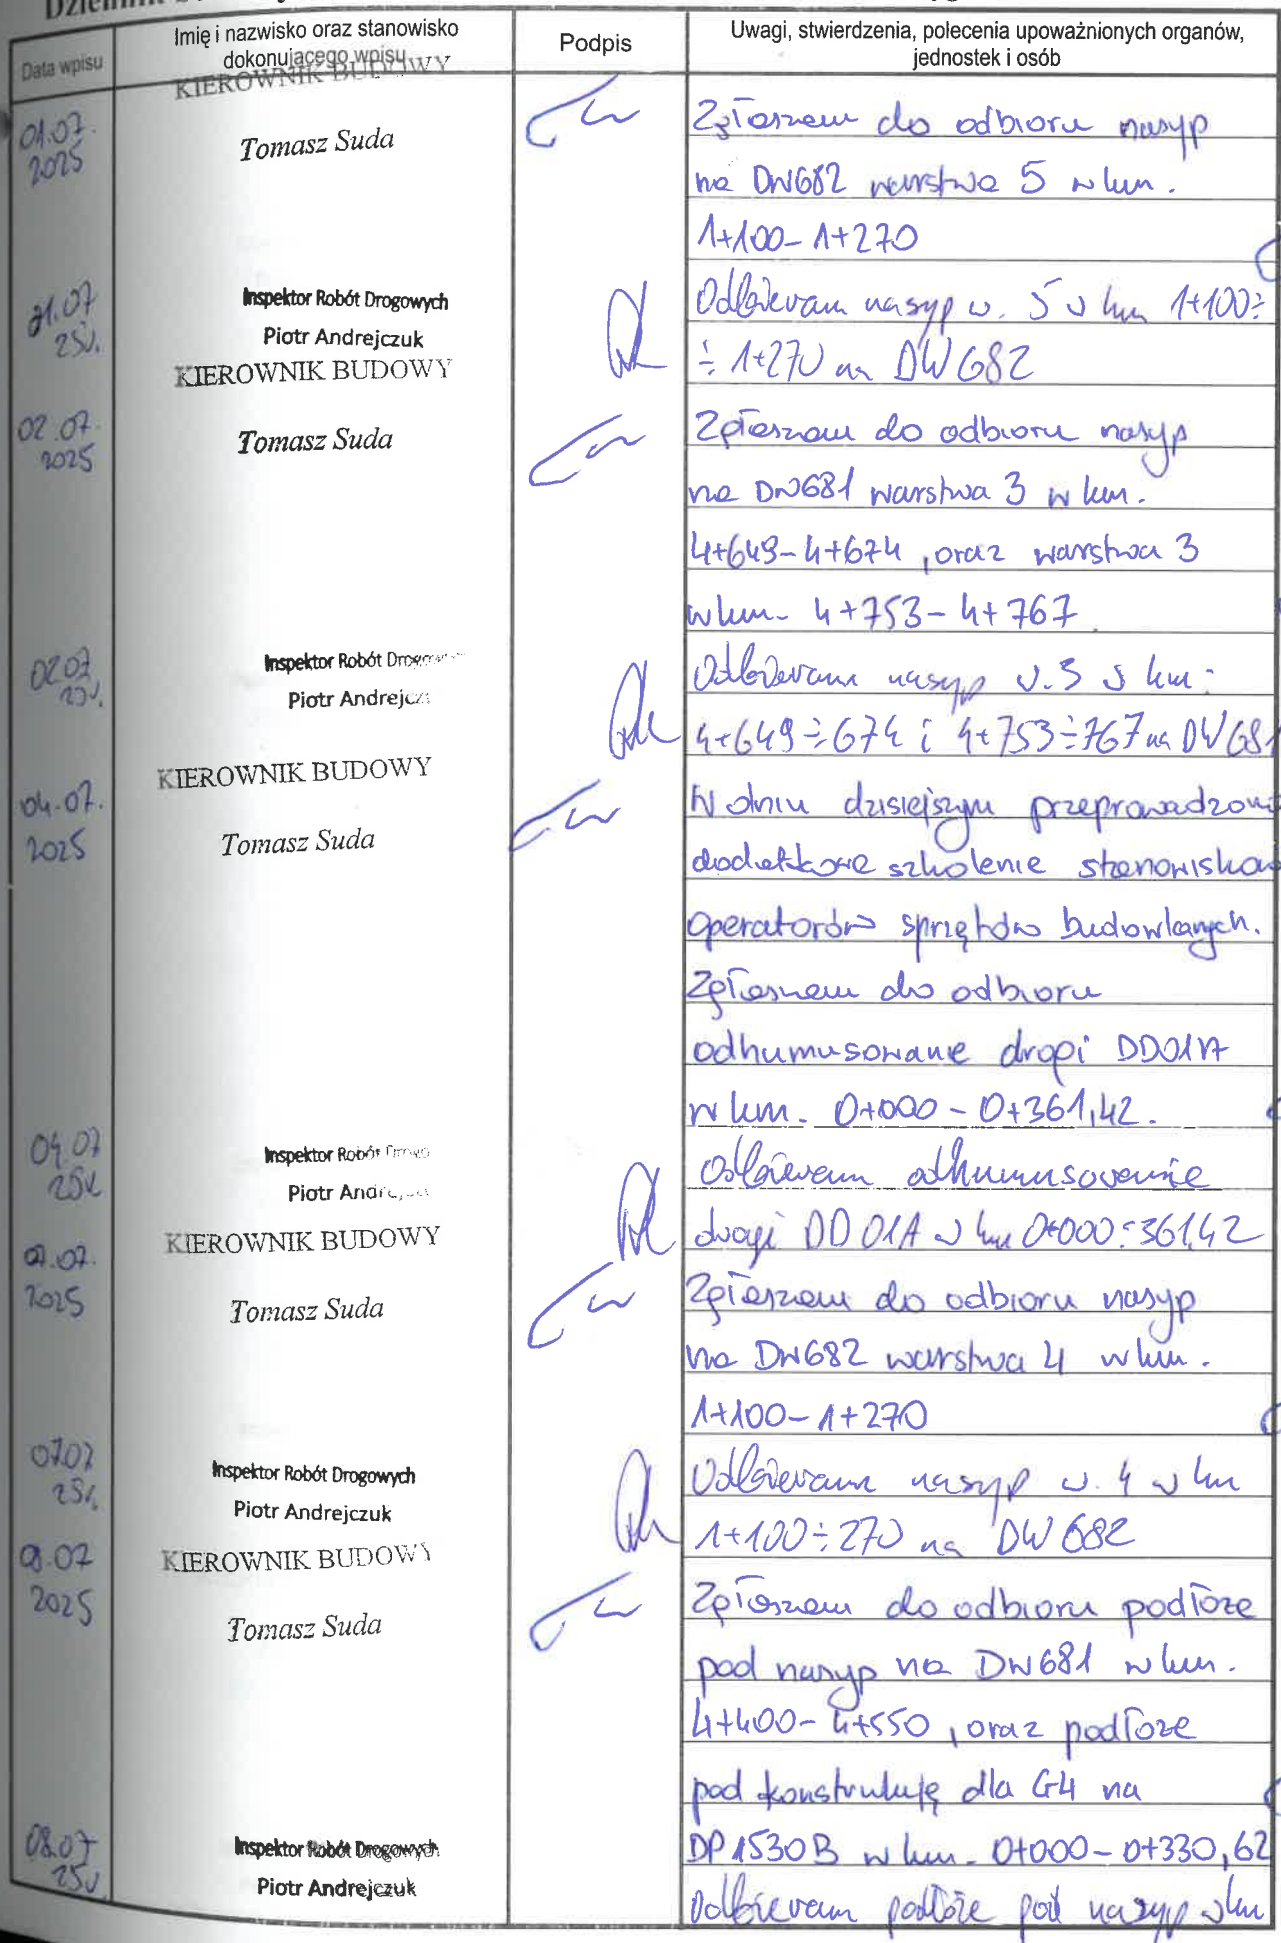 Data wpisu
Imię i nazwisko oraz stanowisko
dokonującego wpisu
Podpis
Uwagi, stwierdzenia, polecenia upoważnionych organów,
jednostek i osób
01.07.
2025
KIEROWNIK BUDOWY
Tomasz Suda
Zgłaszam do odbioru nasyp
na DW682 warstwa 5 w km.
1+100-1+270
01.07
25r.
Inspektor Robót Drogowych
Piotr Andrejczuk
Odbieram nasyp w. 5 w km 1+100÷
÷ 1+270 na DW 682
02.07.
2025
KIEROWNIK BUDOWY
Tomasz Suda
Zgłaszam do odbioru nasyp
na DW681 warstwa 3 w km.
4+649-4+674, oraz warstwa 3
w km. 4+753-4+767
02.07
25r.
Inspektor Robót
Piotr
Odbieram nasyp w. 3 w km
4+649÷674 i 4+753÷767 na DW 681
04.07.
2025
KIEROWNIK BUDOWY
Tomasz Suda
W dniu dzisiejszym
dodatkowe szkolenie
operatorów sprzętów budowlanych.
Zgłaszam do odbioru
odhumusowanie drogi DD01A
w km. 0+000-0+361,42.
04.07
25r.
Inspektor Robót
Piotr
Odbieram odhumusowanie
drogi DD 01A w km 0+000÷361,42
07.07.
2025
KIEROWNIK BUDOWY
Tomasz Suda
Zgłaszam do odbioru nasyp
na DW682 warstwa 4 w km.
1+100-1+270
07.07
25r.
Inspektor Robót Drogowych
Piotr Andrejczuk
Odbieram nasyp w. 4 w km
1+100÷270 na DW 682
08.07
2025
KIEROWNIK BUDOWY
Tomasz Suda
Zgłaszam do odbioru podłoże
pod nasyp na DW681 w km.
4+400-4+550, oraz podłoże
pod konstrukcję dla G4 na
DP1530B w km. 0+000-0+330,62
08.07
25r
Inspektor Robót Drogowych
Piotr Andrejczuk
Odbieram podłoże pod nasyp w km